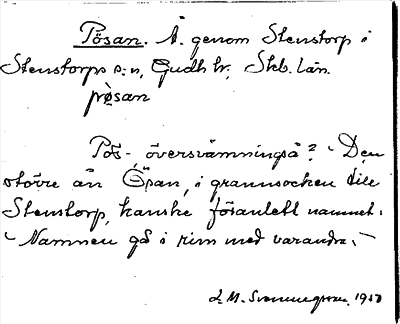 Pösan. Å. genom Stenstorp i
Stenstorps s:n, Gudh. hr, Skb. län.
pø̀san
Pös-, översvämningså? - Den
större än Ösan, i grannsocken till
Stenstorp, kanske föranlett namnet.
- Namnen gå i rim med varandra. -
1950